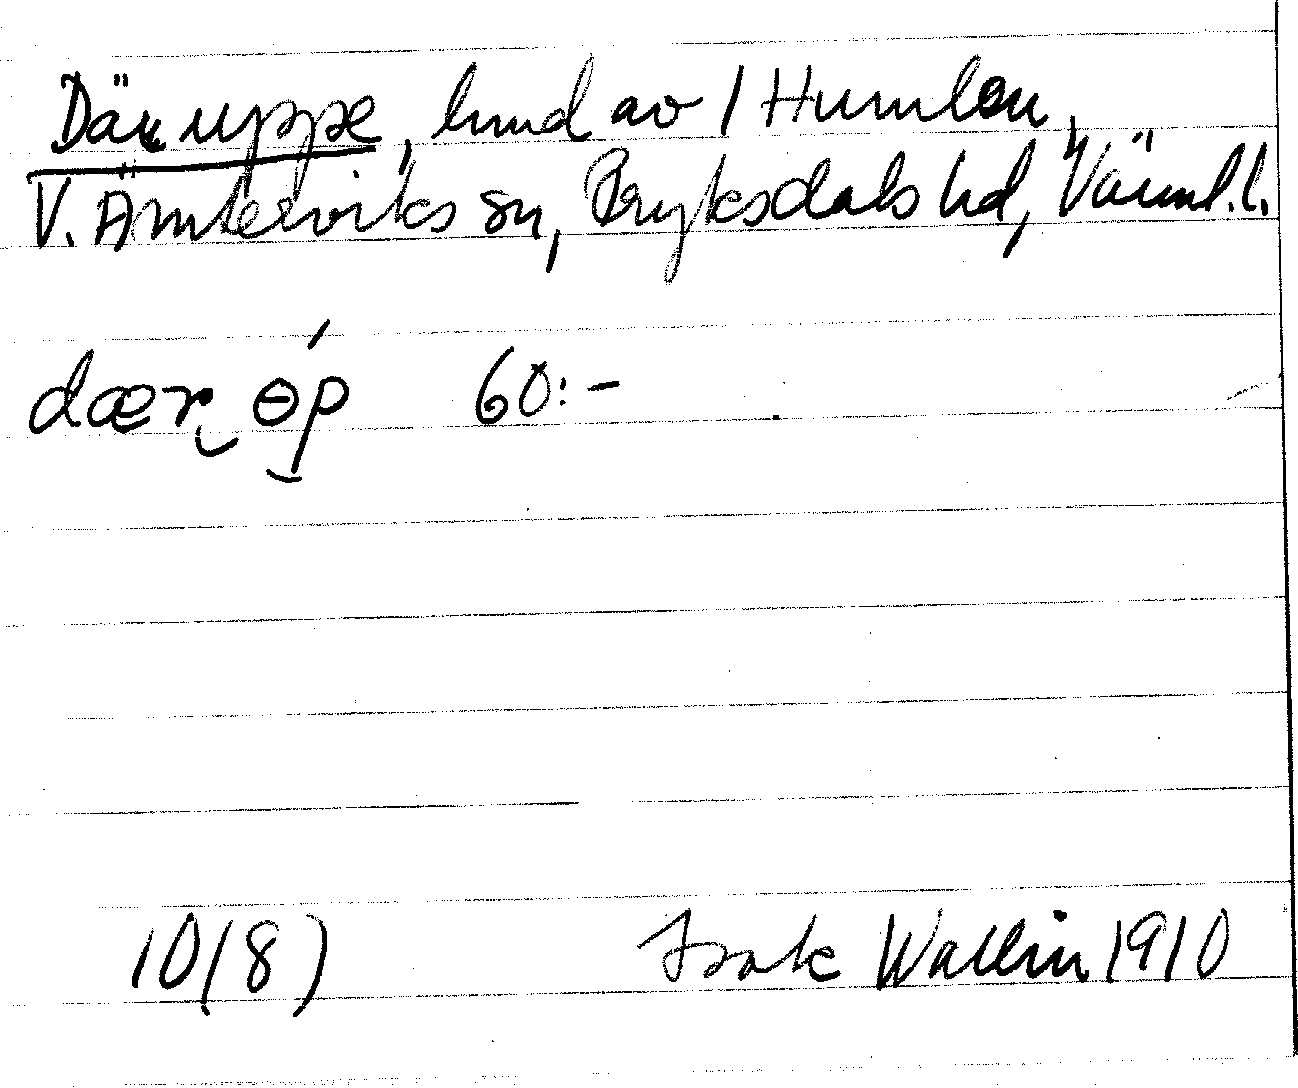 Däruppe, hmd av 1 Humlen,
V. Ämterviks sn, Fryksdals hd, Värml.l.
dær ǿp 60:-
10(8) Isak Wallin 1910